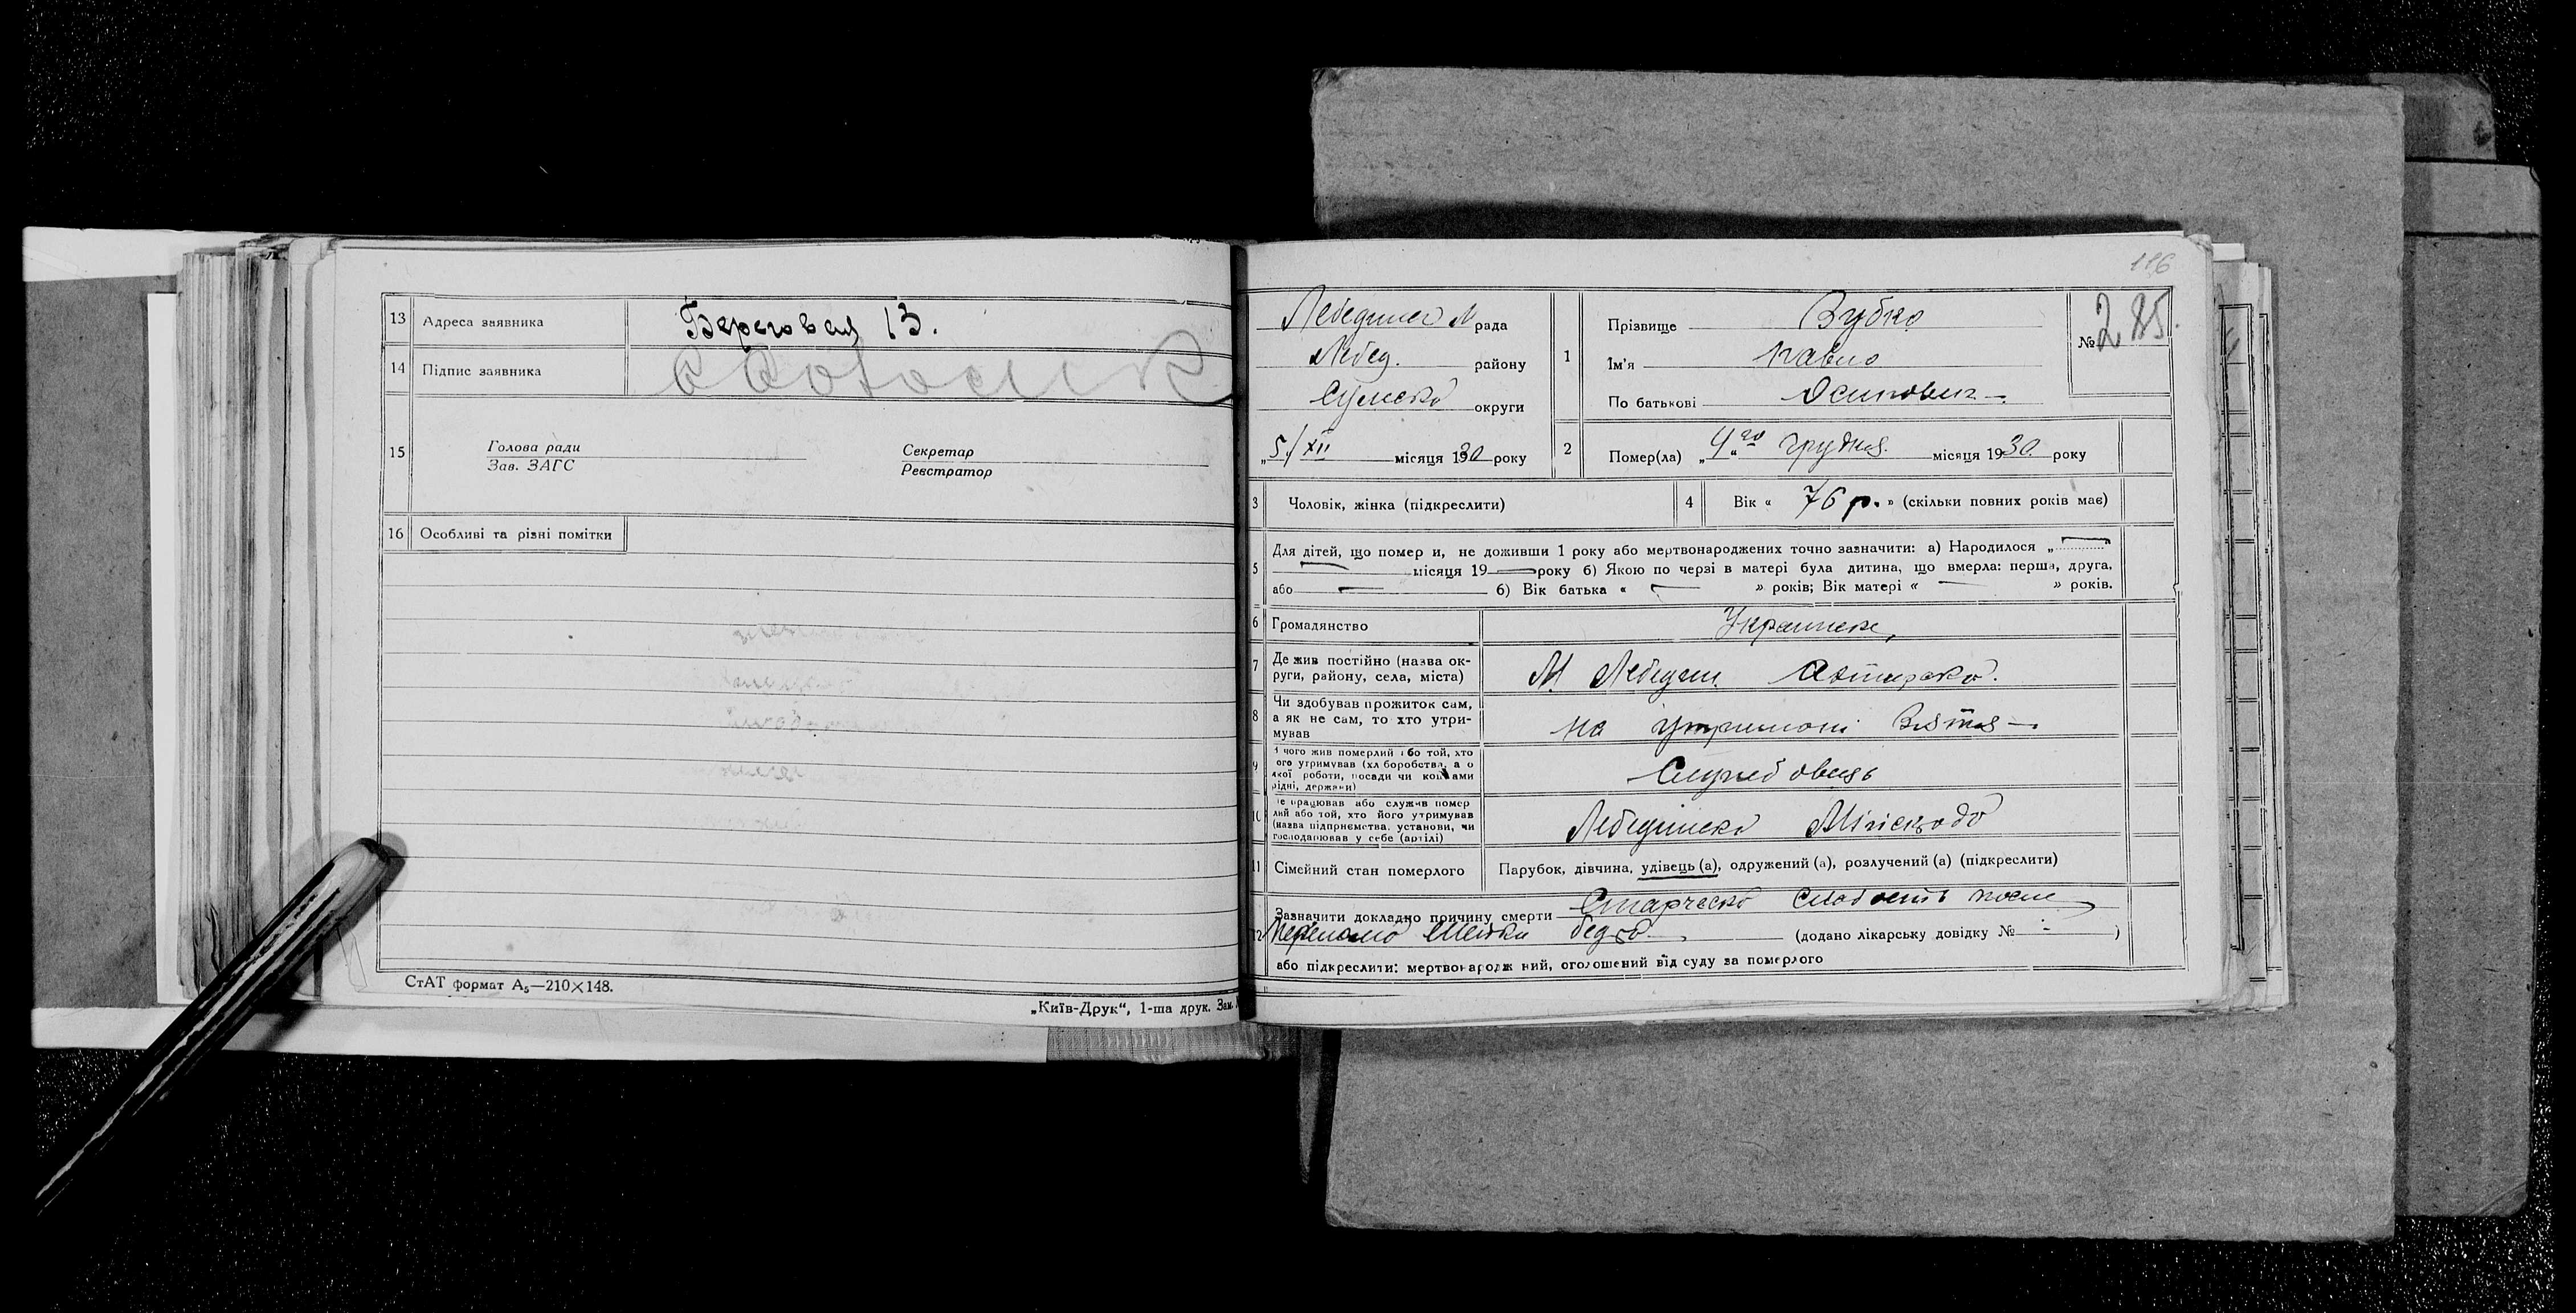 13 Адреса заявника Береговая 13.
14 Підпис заявника
15 Голова ради Секретар
Зав. ЗАГС Реєстратор
16 Особливі та різні помітки
СтАТ формат А₅—210×148.
„Київ-Друк“, 1-ша друк. Зам.
116
Лебединск М рада
Лебед. району
Сумско округи
„5/XII місяця 1930 року
1 Прізвище Зубко
Ім'я Павло
По батькові Осипович
№ 285.
2 Помер(ла) „4го грудня місяця 1930 року
3 Чоловік, жінка (підкреслити)
4 Вік « 76 р. » (скільки повних років має)
5 Для дітей, що помер и, не доживши 1 року або мертвонароджених точно зазначити: а) Народилося „ — "
— місяця 19 — року б) Якою по черзі в матері була дитина, що вмерла: перша, друга,
або — б) Вік батька « — » років; Вік матері « — » років.
6 Громадянство Украинск,
7 Де жив постійно (назва ок-
руги, району, села, міста) М Лебедин
8 Чи здобував прожиток сам,
а як не сам, то хто утри-
мував на утримані Зятя —
9 З чого жив померлий або той, хто
ого утримував (хліборобства, а о
якої роботи, посади чи коштами
рідні, держави) Службовець
10 Де працював або служив помер
лий або той, хто його утримував
(назва підприємства, установи, чи
господарював у себе (артілі) Лебединско
11 Сімейний стан померлого Парубок, дівчина, удівець (а), одружений (а), розлучений (а) (підкреслити)
12 Зазначити докладно причину смерти Старческо Слабость после
перелома Шейки бедра (додано лікарську довідку № - )
або підкреслити: мертвонародж ний, оголошений від суду за померлого